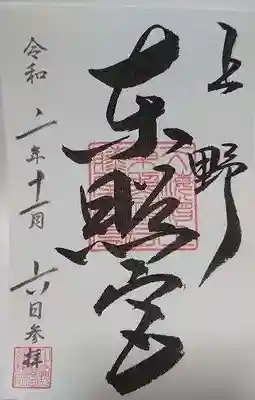 上野
東照宮
令和二年十一月六日参拝